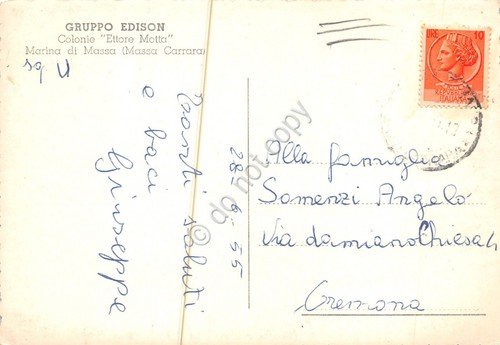 GRUPPO EDISON
Colonie "Ettore Motta"
Marina di Massa (Massa Carrara)
Tanti saluti
e baci
Giuseppe
28-6-55
LIRE 10
Alla famiglia
Somenzi Angelo
Via damiano Chiesa 4
Cremona
do not copy